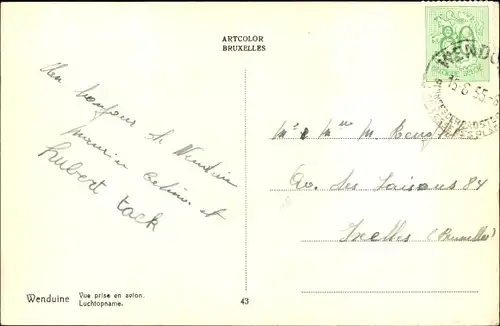 ARTCOLOR
BRUXELLES
80
WENDU
15-6-55
Un bonjour de Wenduine
Hubert Tack
Mr & Mme M.
Av. des Saisons 84
Ixelles (Bruxelles)
Wenduine Vue prise en avion.
Luchtopname.
43